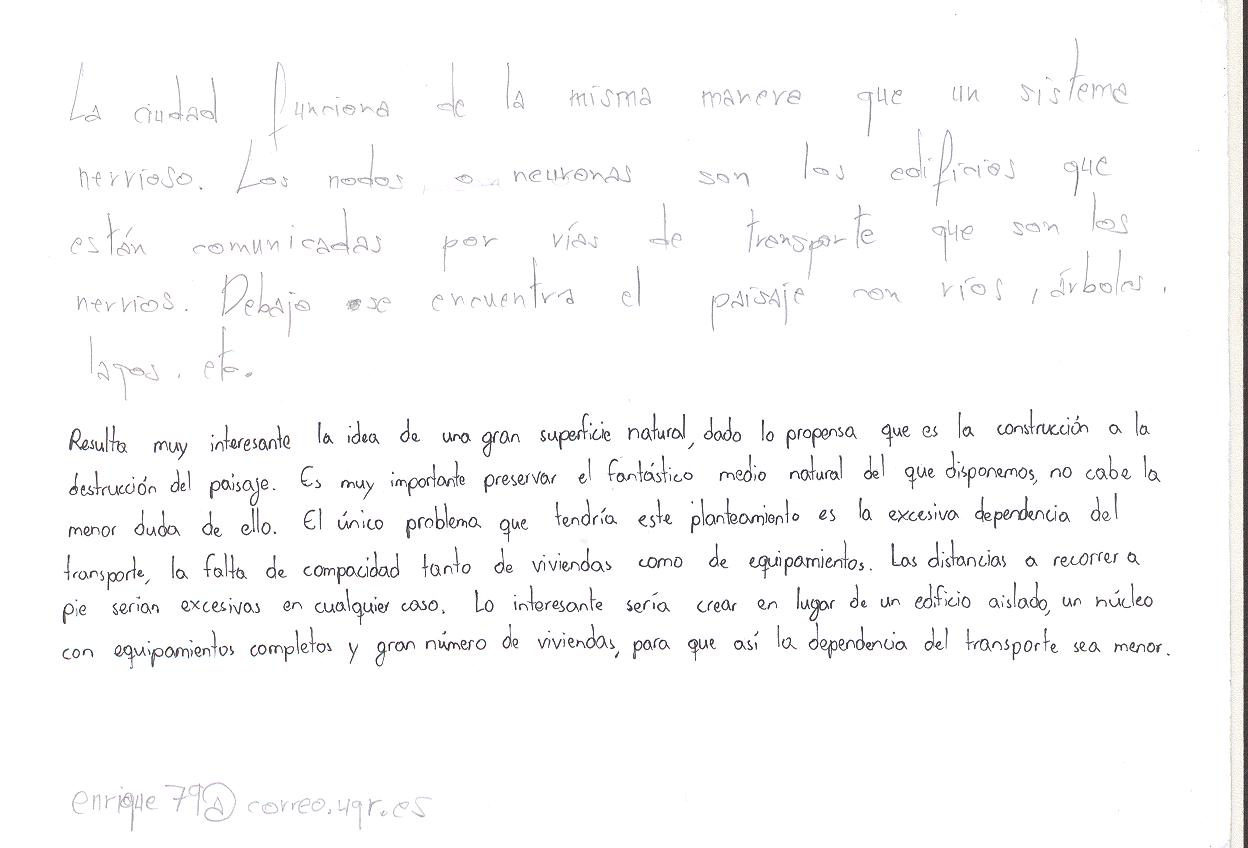 La ciudad funciona de la misma manera que un sistema
nervioso. Los nodos o neuronas son los edificios que
están comunicadas por vías de transporte que son los
nervios. Debajo se encuentra el paisaje con ríos, árboles,
lagos, etc.
Resulta muy interesante la idea de una gran superficie natural, dado lo propensa que es la construcción a la
destrucción del paisaje. Es muy importante preservar el fantástico medio natural del que disponemos, no cabe la
menor duda de ello. El único problema que tendría este planteamiento es la excesiva dependencia del
transporte, la falta de compacidad tanto de viviendas como de equipamiento. Las distancias a recorrer a
pie serian excesivas en cualquier caso. Lo interesante sería crear en lugar de un edificio aislado, un núcleo
con equipamientos completos y gran número de viviendas, para que así la dependencia del transporte sea menor.
enrique79@correo.ugr.es